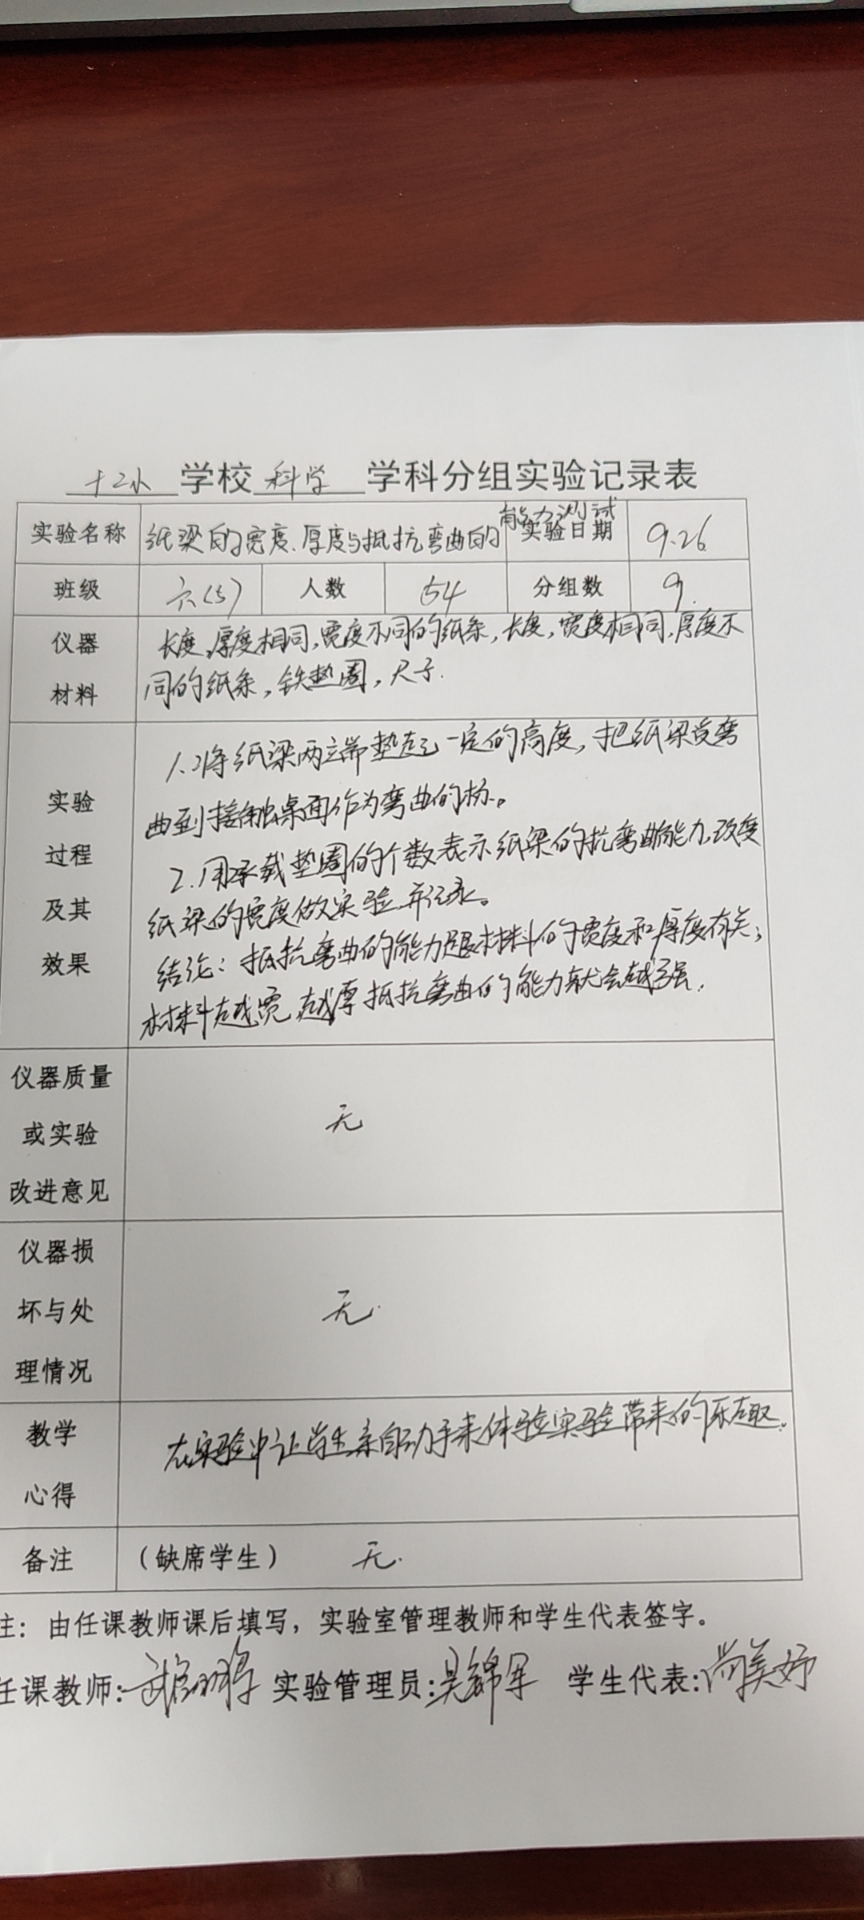 十二小 学校 科学 学科分组实验记录表
实验名称 纸梁的宽度、厚度与抵抗弯曲的能力测试 实验日期 9.26
班级 六(5) 人数 54 分组数 9.
仪器材料 长度、厚度相同,宽度不同的纸条,长度,宽度相同,厚度不
同的纸条,铁垫圈,尺子.
实验过程及其效果
1.将纸梁两端垫起一定的高度,把纸梁弯
曲到接触桌面作为弯曲的标。
2.用承载垫圈的个数表示纸梁的抗弯曲能力,改变
纸梁的宽度做实验并记录。
结论:抵抗弯曲的能力跟材料的宽度和厚度有关;
材料越宽、越厚抵抗弯曲的能力就会越强.
仪器质量或实验改进意见 无
仪器损坏与处理情况 无.
教学心得 在实验中让学生亲自动手来体验实验带来的乐趣.
备注 (缺席学生) 无.
注:由任课教师课后填写,实验室管理教师和学生代表签字。
任课教师: 实验管理员:吴锦军 学生代表:尚美妤